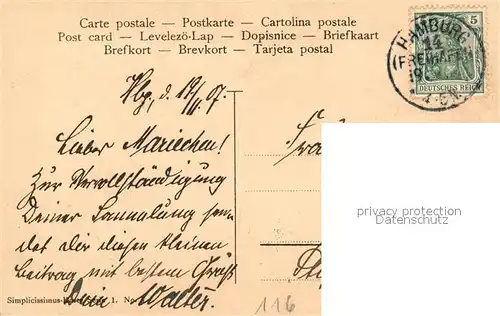 Carte postale — Postkarte — Cartolina postale
Post card — Levelező-Lap — Dopisnice — Briefkaart
Brefkort — Brevkort — Tarjeta postal
HAMBURG
14
(FREIHAFEN)
5
DEUTSCHES REICH
Hbg, d. 19/II. 07.
Lieber Mariechen!
Zur Vervollständigung
Deiner Sammlung sen-
det Dir diesen kleinen
Beitrag mit bestem Gruß
Dein Walter.
privacy protection
Datenschutz
Simplicissimus- 1. No.
116